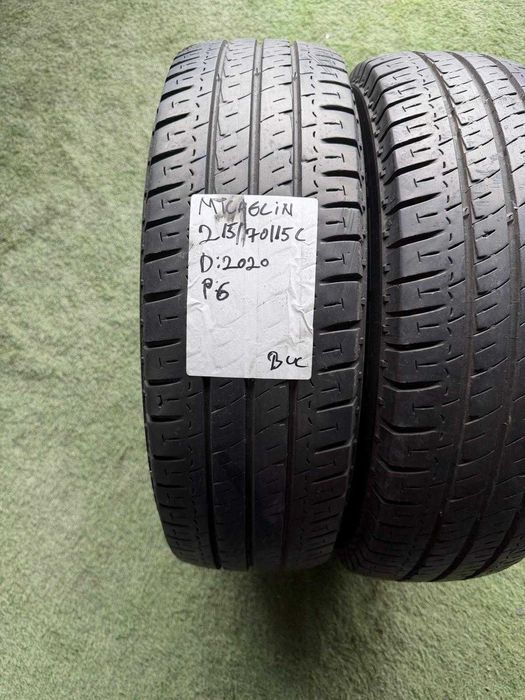 MICHELIN
215/70/15C
D:2020
P:6
Buc